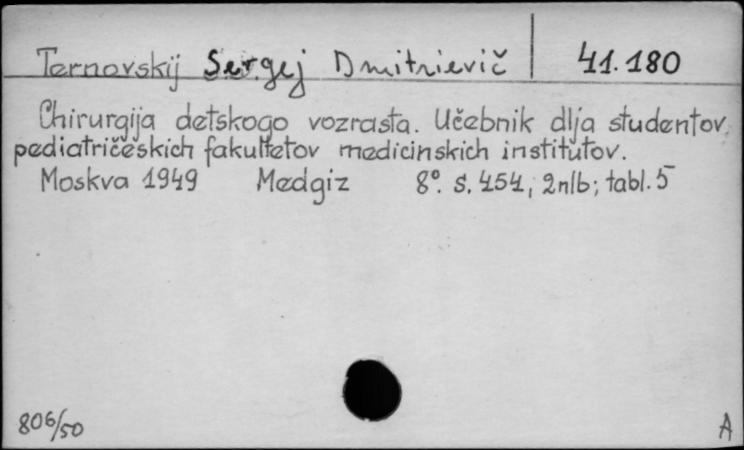 Ternovskij Sergej Dmitrievič 41.180
Chirurgija detskogo vozrasta. Učebnik dlja studentov
pediatričeskich fakultetov medicinskich institutov.
Moskva 1949 Medgiz 8°. S. 454, 2nlb; tabl. 5
806/50 A